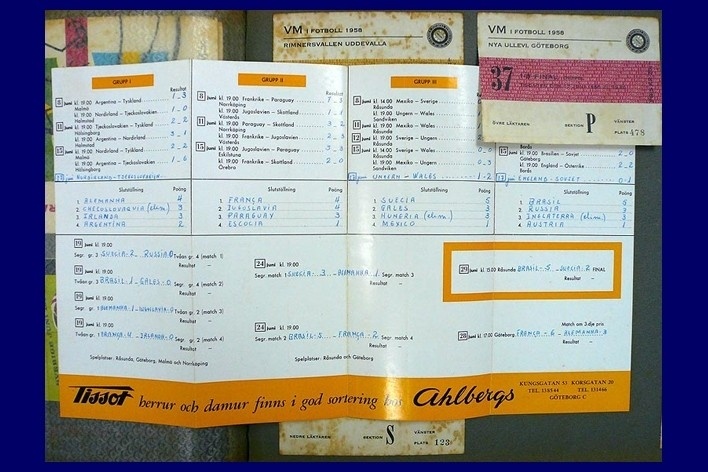 VM I FOTBOLL 1958
RIMNERSVALLEN UDDEVALLA
VM I FOTBOLL 1958
NYA ULLEVI, GÖTEBORG
37
ÖVRE LÄKTAREN SEKTION P VÄNSTER
PLATS 478
GRUPP I
Resultat
8 Juni kl. 19.00 Argentina – Tyskland 1 - 3
Malmö
kl. 19.00 Nordirland – Tjeckoslovakien 1 - 0
Halmstad
11 Juni kl. 19.00 Tjeckoslovakien – Tyskland 2 - 2
Hälsingborg
kl. 19.00 Argentina – Nordirland 3 - 1
Halmstad
15 Juni kl. 19.00 Nordirland – Tyskland 2 - 2
Malmö
kl. 19.00 Argentina – Tjeckoslovakien 1 - 6
Hälsingborg
17 Juni NORDIRLAND - TJECKOSLOVAKIEN
Slutställning Poäng
1 ALEMANHA 4
2 CHECOLLOVAQUIA (elim.) 3
3 IRLANDA 3
4 ARGENTINA 2
GRUPP II
Resultat
8 Juni kl. 19.00 Frankrike – Paraguay 7 - 3
Norrköping
kl. 19.00 Jugoslavien – Skottland 1 - 1
Västerås
11 Juni kl. 19.00 Paraguay – Skottland 3 - 2
Norrköping
kl. 19.00 Frankrike – Jugoslavien 2 - 3
Västerås
15 Juni kl. 19.00 Jugoslavien – Paraguay 3 - 3
Eskilstuna
kl. 19.00 Frankrike – Skottland 2 - 0
Örebro
Slutställning Poäng
1 FRANÇA 4
2 JUGOSLAVIA 4
3 PARAGUAY 3
4 ESCOCIA 1
GRUPP III
8 Juni kl. 14.00 Mexiko – Sverige
Råsunda
kl. 19.00 Ungern – Wales
Sandviken
11 Juni kl. 19.00 Mexiko – Wales
Råsunda
kl. 19.00 Ungern – Sverige
15 Juni kl. 14.00 Sverige – Wales
Råsunda
kl. 19.00 Mexiko – Ungern 0 - 3
Sandviken
17 Juni UNGERN - WALES 1 - 2
Slutställning Poäng
1 SUECIA 5
2 GALES 3
3 HUNGRIA (elim.) 3
4 MEXICO 1
Borås
15 Juni kl. 19.00 Brasilien – Sovjet 2 - 0
Göteborg
kl. 19.00 England – Österrike 2 - 2
Borås
17 ENGLAND - SOVJET 0 - 1
Slutställning Poäng
1 BRASIL 5
2 RUSSIA 3
3 INGLATERRA (elim.) 3
4 AUSTRIA 1
19 Juni kl. 19.00
Segr. gr. 3 SUECIA - 2 RUSSIA 0 Tvåan gr. 4 (match 1)
Resultat –
19 Juni kl. 19.00
Segr. gr. 4 BRASIL - 1 GALES - 0 Tvåan gr. 3 (match 2)
Resultat –
19 Juni kl. 19.00
Segr. gr. 1 ALEMANHA - 1 IUGOSLAVIA - 0 gr. 2 (match 3)
Resultat –
19 Juni kl. 19.00
Tvåan gr. 1 FRANÇA - 4 IRLANDA - 0 Segr. gr. 2 (match 4)
Resultat –
Spelplatser: Råsunda, Göteborg, Malmö och Norrköping
24 Juni kl. 19.00
Segr. match 1 SUECIA - 3 ALEMANHA 1 Segr. match 3
Resultat –
24 Juni kl. 19.00
Segr. match 2 BRASIL - 5 FRANÇA - 2 Segr. match 4
Resultat –
Spelplatser: Råsunda och Göteborg
29 Juni kl. 15.00 Råsunda BRASIL - 5 SUECIA - 2 FINAL
Resultat –
Match om 3:dje pris
28 Juni kl. 17.00 Göteborg FRANÇA - 6 - ALEMANHA - 3
Resultat –
Tissot herrur och damur finns i god sortering hos Ahlbergs
KUNGSGATAN 53 KORSGATAN 20
TEL. 138544 TEL. 131466
GÖTEBORG C
NEDRE LÄKTAREN SEKTION S VÄNSTER
PLATS 123